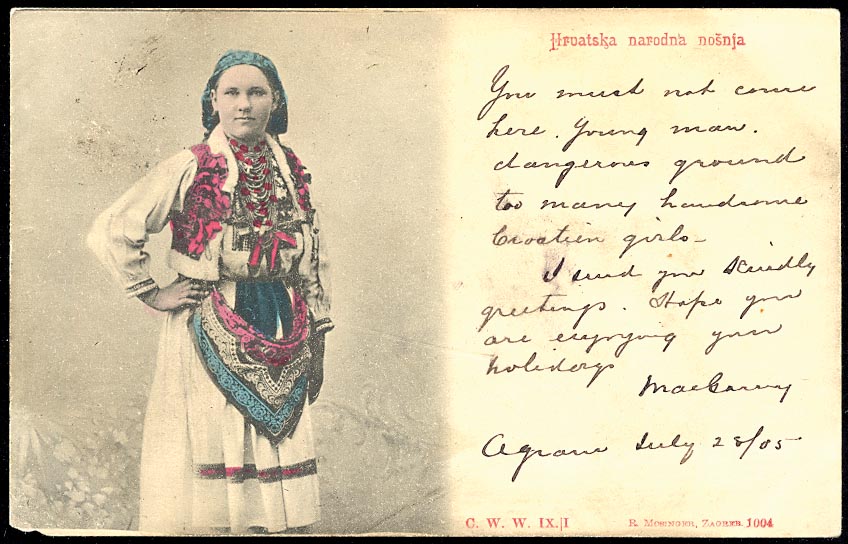 Hrvatska narodna nošnja
You must not come
here. Young man.
dangerous ground
too many handsome
Croatien girls -
I send you kindly
greetings. Hope you
are enjoying your
holidays
Agram July 28/05
C. W. W. IX.|I
R. Mosinger, Zagreb. 1004